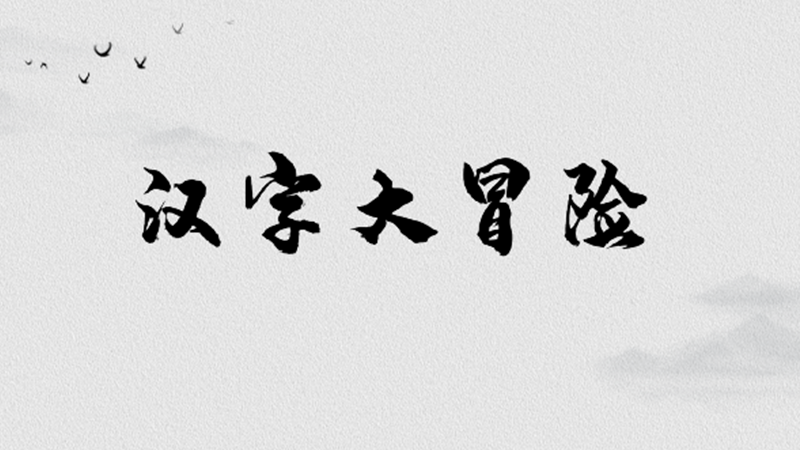 汉字大冒险